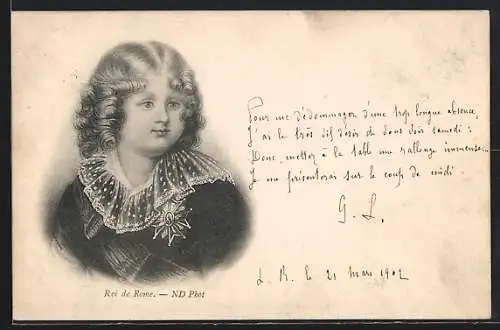 Pour me dédommager d'une trop longue absence,
J'ai le très vif désir de vous voir samedi :
Donc, mettez à la table une rallonge immense...
Je me présenterai sur le coup de midi.
G. L.
L. R. le 21 mars 1902
Roi de Rome. — ND Phot